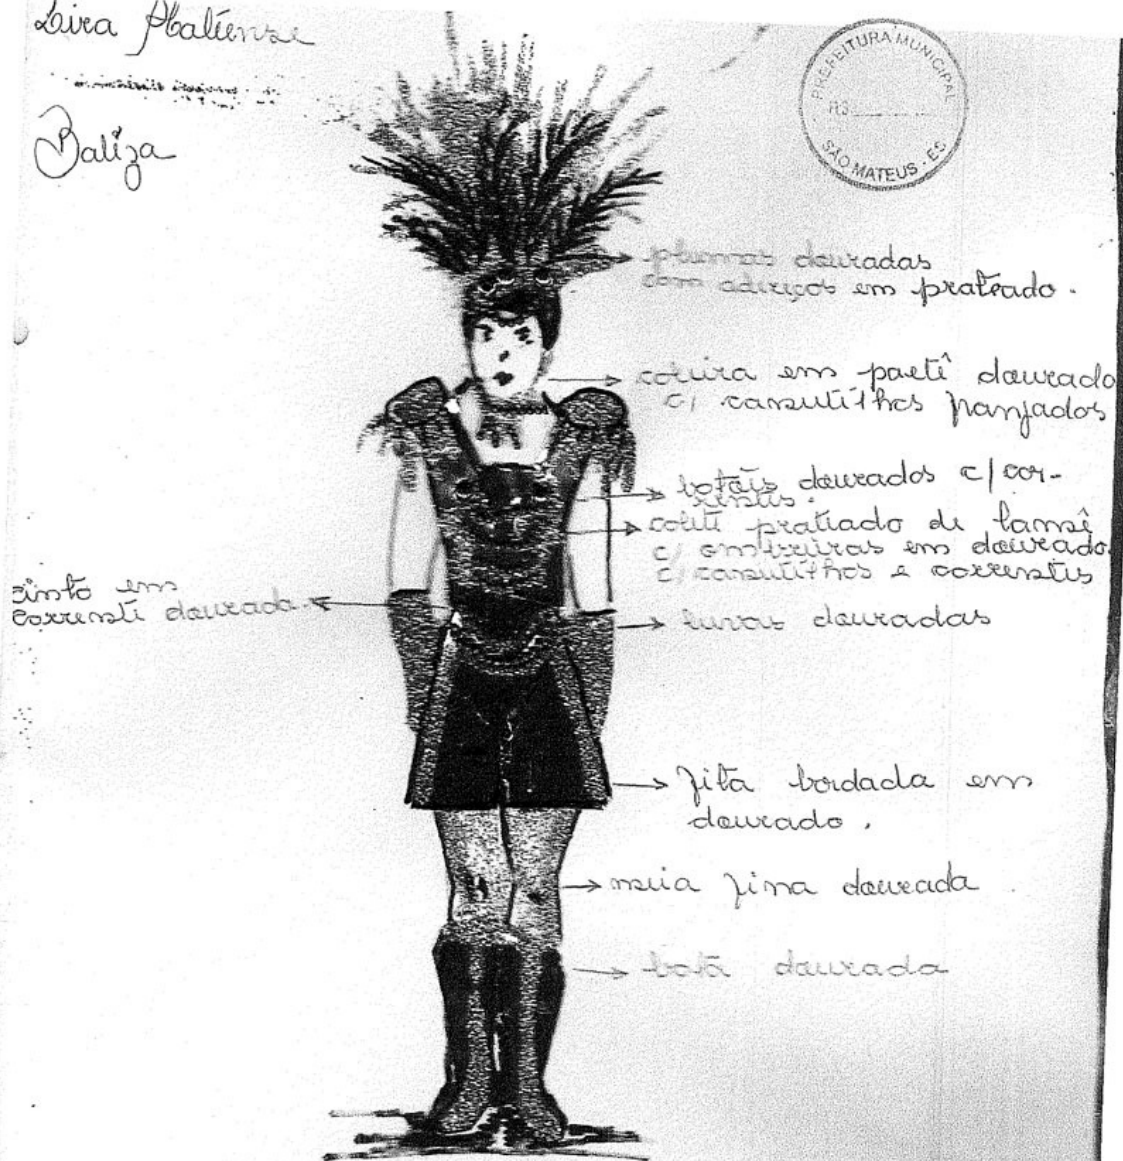 Lira Mateense
Baliza
PREFEITURA MUNICIPAL
SÃO MATEUS - ES
plumas douradas
com adereços em prateado.
coleira em paetê dourado
c/ canutilhos franjados
botões dourados c/ cor-
rentes.
colete prateado de lamê
c/ ombreiras em dourado
c/ canutilhos e correntes
cinto em
corrente dourada
luvas douradas
fita bordada em
dourado.
meia fina dourada
bota dourada